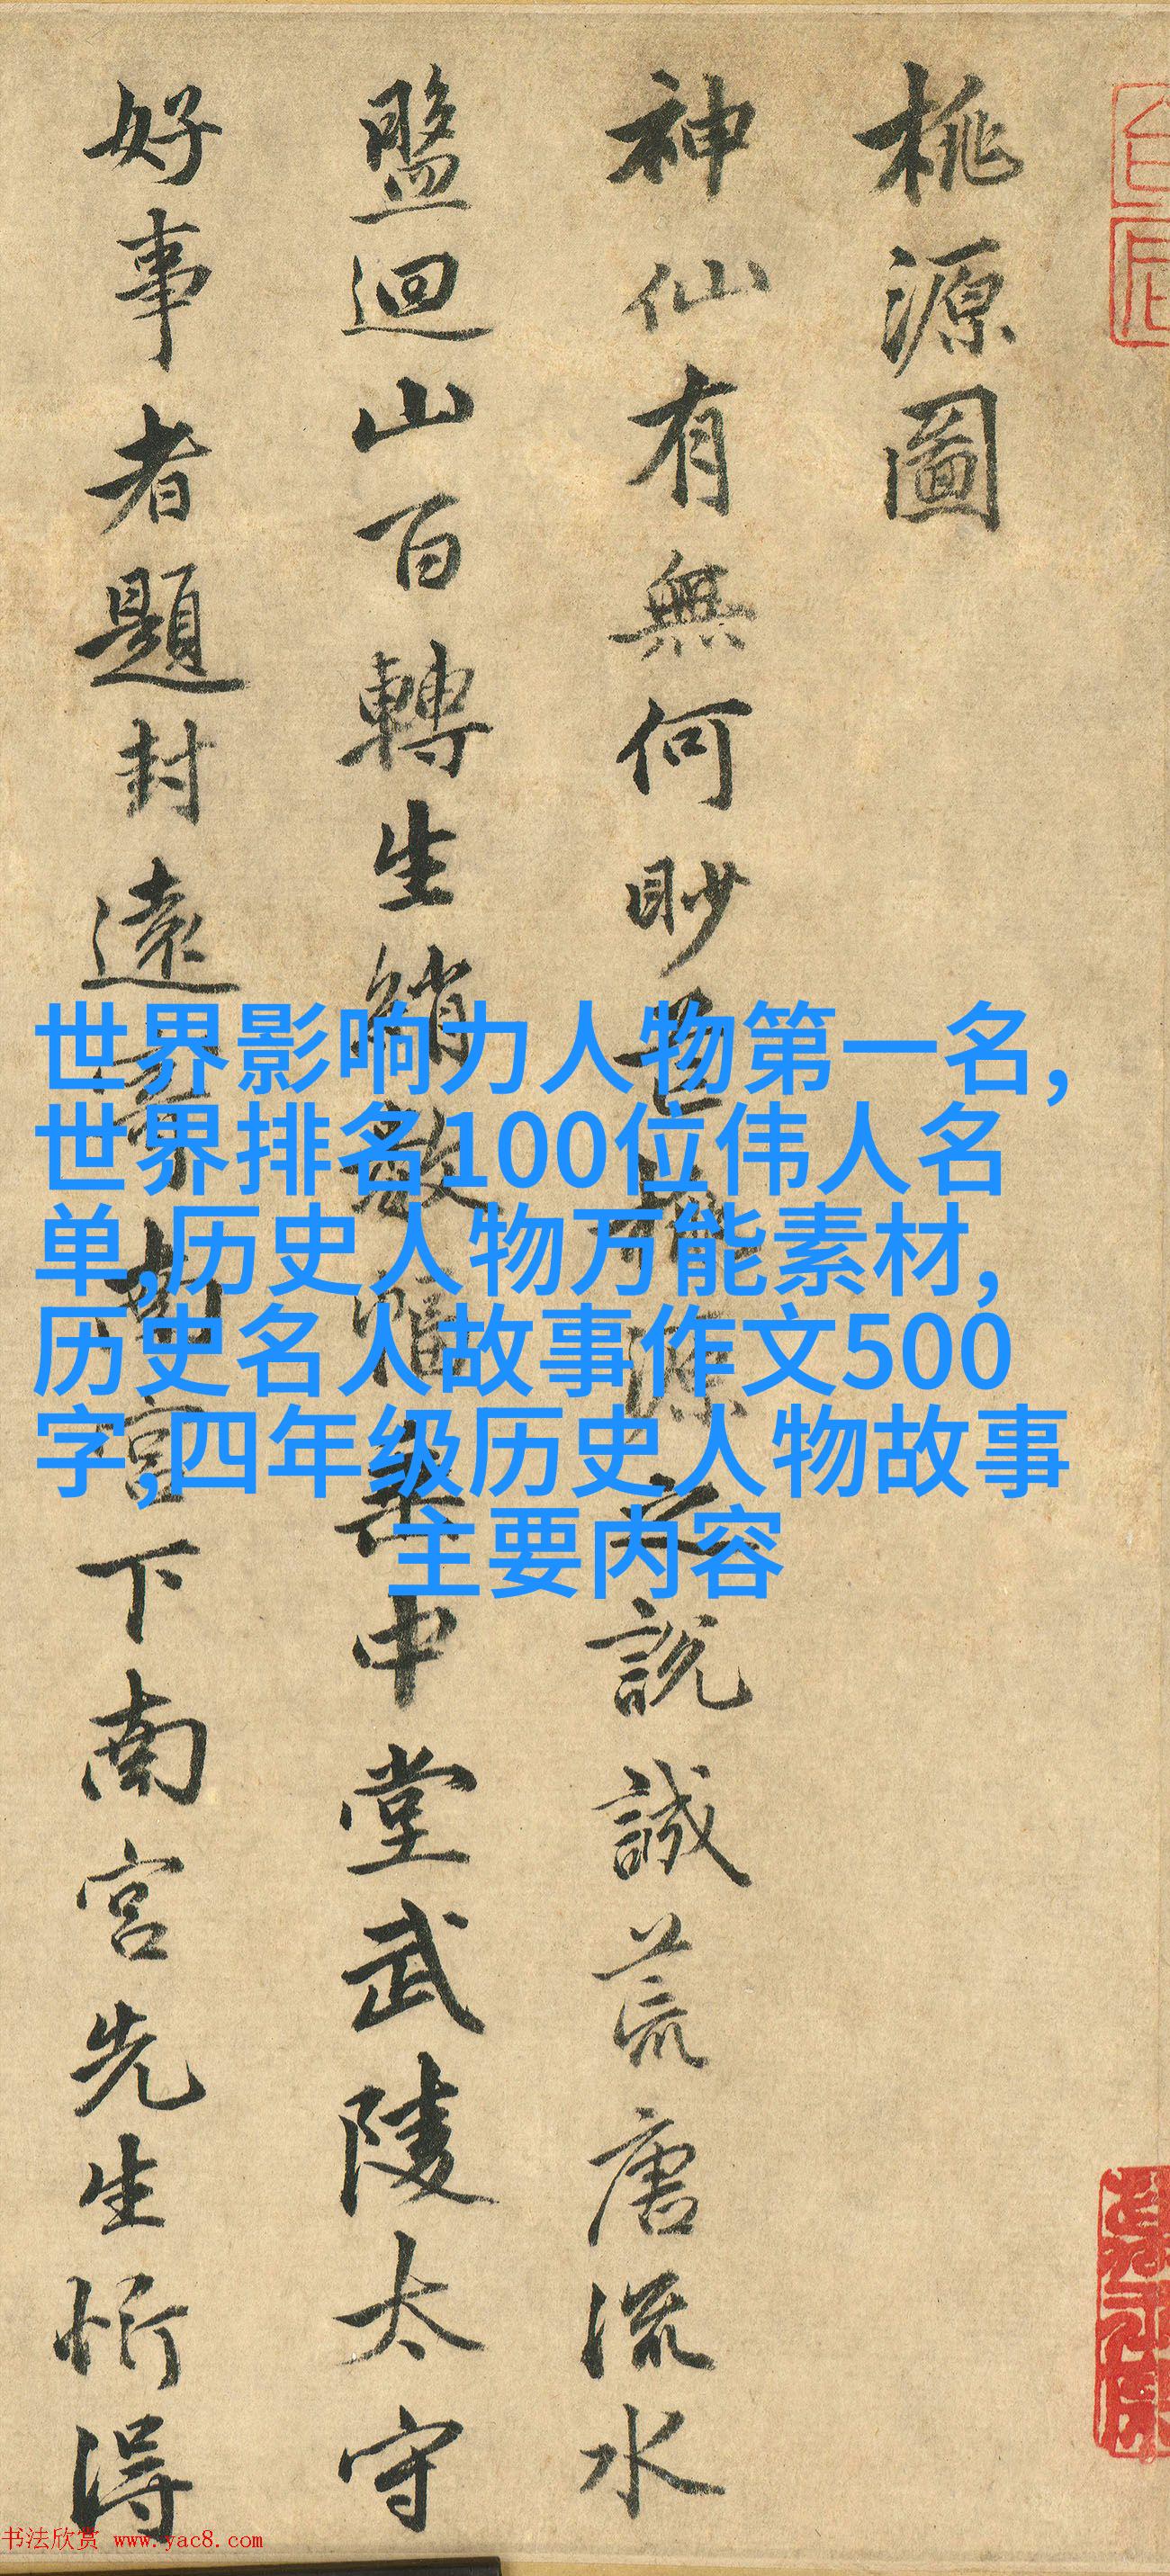 桃源圖
神仙有無何眇芒桃源之說誠荒唐流水
盤迴山百轉生綃數幅垂中堂武陵太守
好事者題封遠寄南宮下南宮先生忻得
世界影响力人物第一名,
世界排名100位伟人名
单,历史人物万能素材,
历史名人故事作文500
字,四年级历史人物故事
主要内容
书法欣赏 www.yac8.com